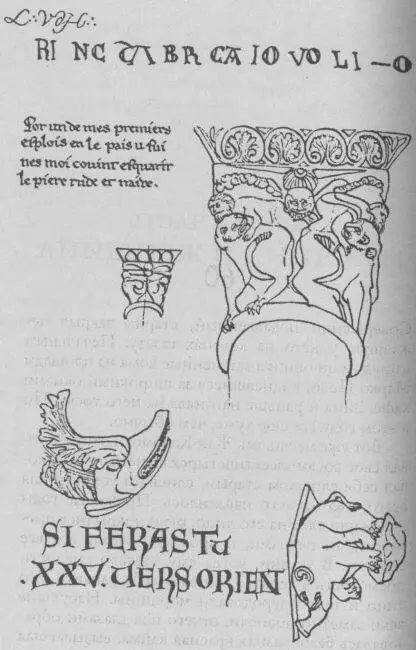 L∴VdH∴
RI NC TA BR CA IO VO LI —O
Por un de mes premiers
esplois en le pais u fui
nes moi couint esquarir
le piere rude et naide.
SI FERAS TU
.XXV VERS ORIEN